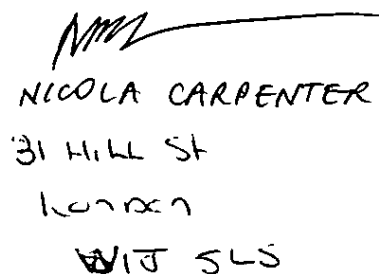 NICOLA CARPENTER
31 HILL St
London
W1J 5LS